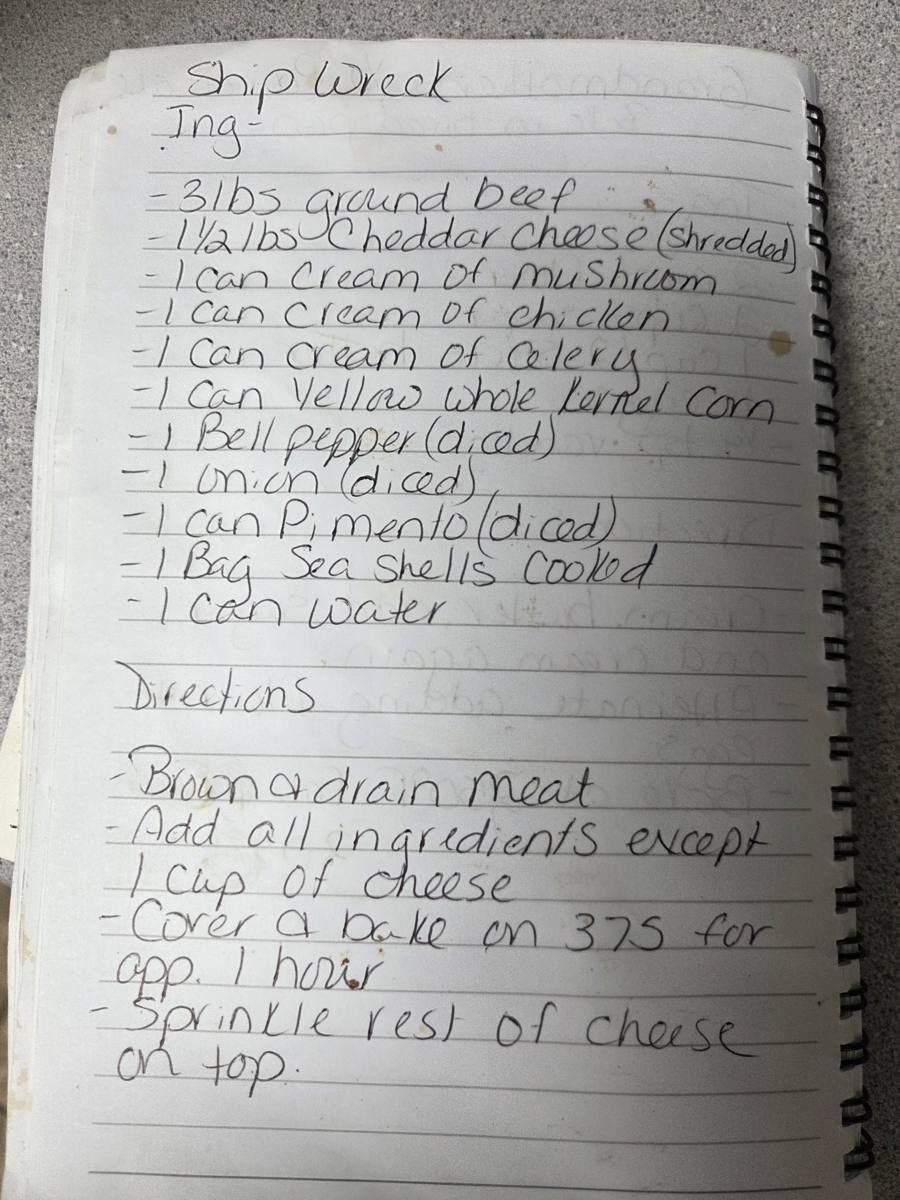 Ship Wreck
Ing-
-3lbs ground beef
-1½ lbs Cheddar cheese (shredded)
-1 can Cream of mushroom
-1 can cream of chicken
-1 can cream of celery
-1 can Yellow whole kernel corn
-1 Bell pepper (diced)
-1 onion (diced)
-1 can Pimento (diced)
-1 Bag Sea shells cooked
-1 can water
Directions
-Brown & drain meat
-Add all ingredients except
1 cup of cheese
-Cover & bake on 375 for
app. 1 hour
-Sprinkle rest of cheese
on top.